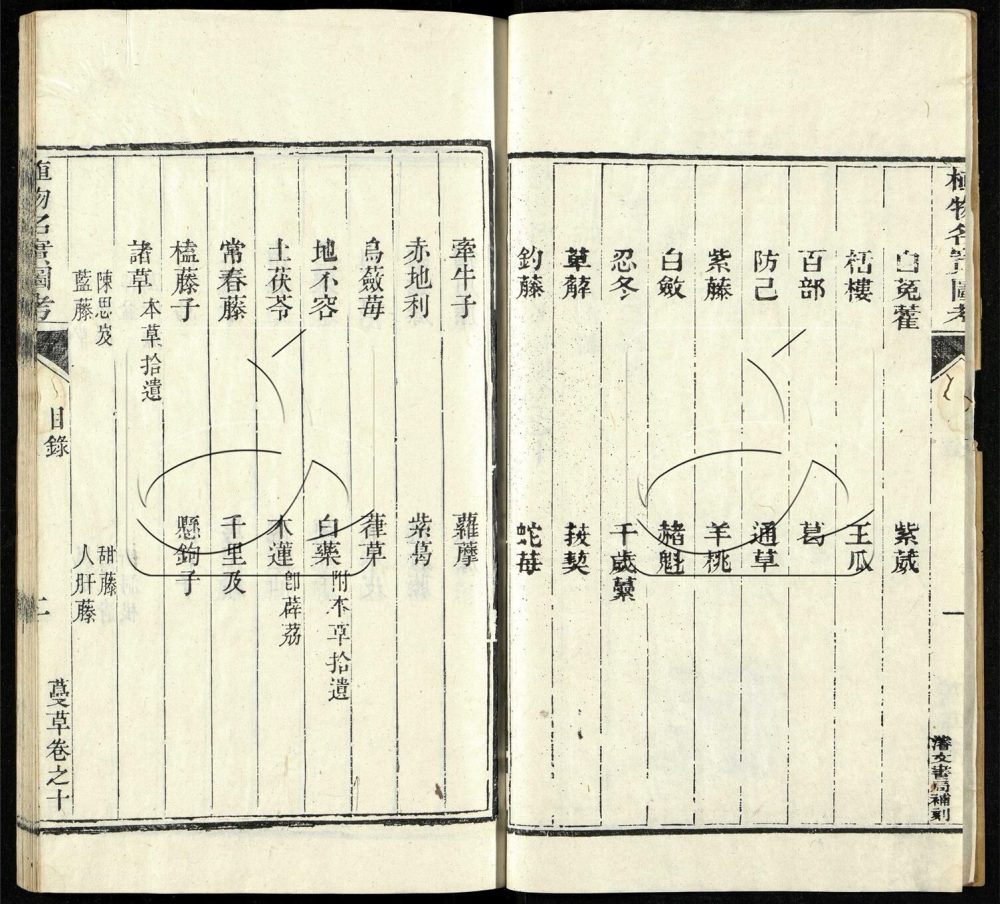 植物名實圖考
一
濬文書局補刻
白兔藿 紫葳
栝樓 王瓜
百部 葛
防己 通草
紫藤 羊桃
白斂 赭魁
忍冬 千歲虆
萆薢 菝葜
釣藤 蛇莓
牽牛子 蘿藦
赤地利 紫葛
烏蘞莓 葎草
地不容 白藥附本草拾遺
土茯苓 木蓮卽薜荔
常春藤 千里及
榼藤子 懸鉤子
諸草本草拾遺
陳思岌 甜藤
藍藤 人肝藤
植物名實圖考
目錄
二
蔓草卷之十